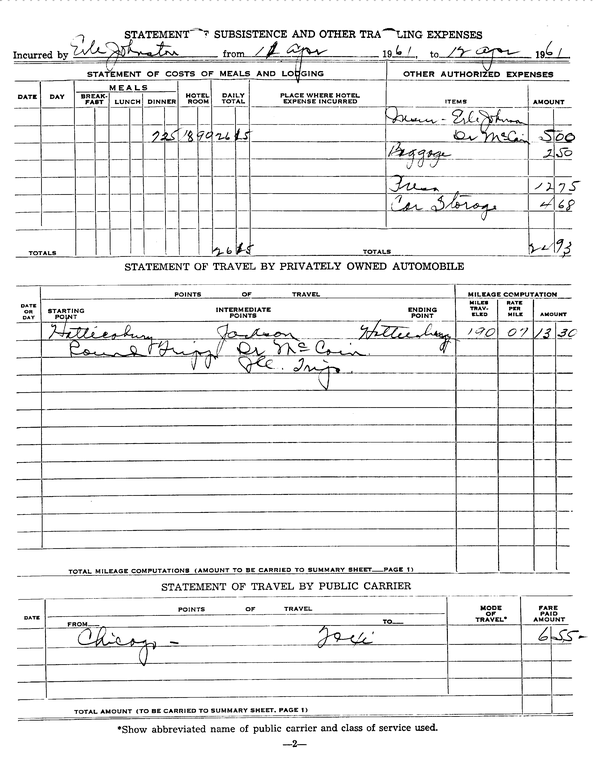 STATEMENT SUBSISTENCE AND OTHER TRA LING EXPENSES
Incurred by Erle Johnston from apr 1961, to apr 1961
STATEMENT OF COSTS OF MEALS AND LODGING OTHER AUTHORIZED EXPENSES
DATE DAY MEALS HOTEL ROOM DAILY TOTAL PLACE WHERE HOTEL EXPENSE INCURRED ITEMS AMOUNT
BREAK-FAST LUNCH DINNER
Erle Johnston
725 1890 Dr McCain 500
Baggage 250
1275
Car Storage 468
TOTALS TOTALS 93
STATEMENT OF TRAVEL BY PRIVATELY OWNED AUTOMOBILE
DATE OR DAY POINTS OF TRAVEL MILEAGE COMPUTATION
STARTING POINT INTERMEDIATE POINTS ENDING POINT MILES TRAV-ELED RATE PER MILE AMOUNT
Hattiesburg Jackson Hattiesburg 190 07 13 30
Round Tripp Dr McCain
Trip
TOTAL MILEAGE COMPUTATIONS (AMOUNT TO BE CARRIED TO SUMMARY SHEET PAGE 1)
STATEMENT OF TRAVEL BY PUBLIC CARRIER
DATE POINTS OF TRAVEL MODE OF TRAVEL* FARE PAID AMOUNT
FROM TO
Chicago - 6 55-
TOTAL AMOUNT (TO BE CARRIED TO SUMMARY SHEET, PAGE 1)
*Show abbreviated name of public carrier and class of service used.
—2—